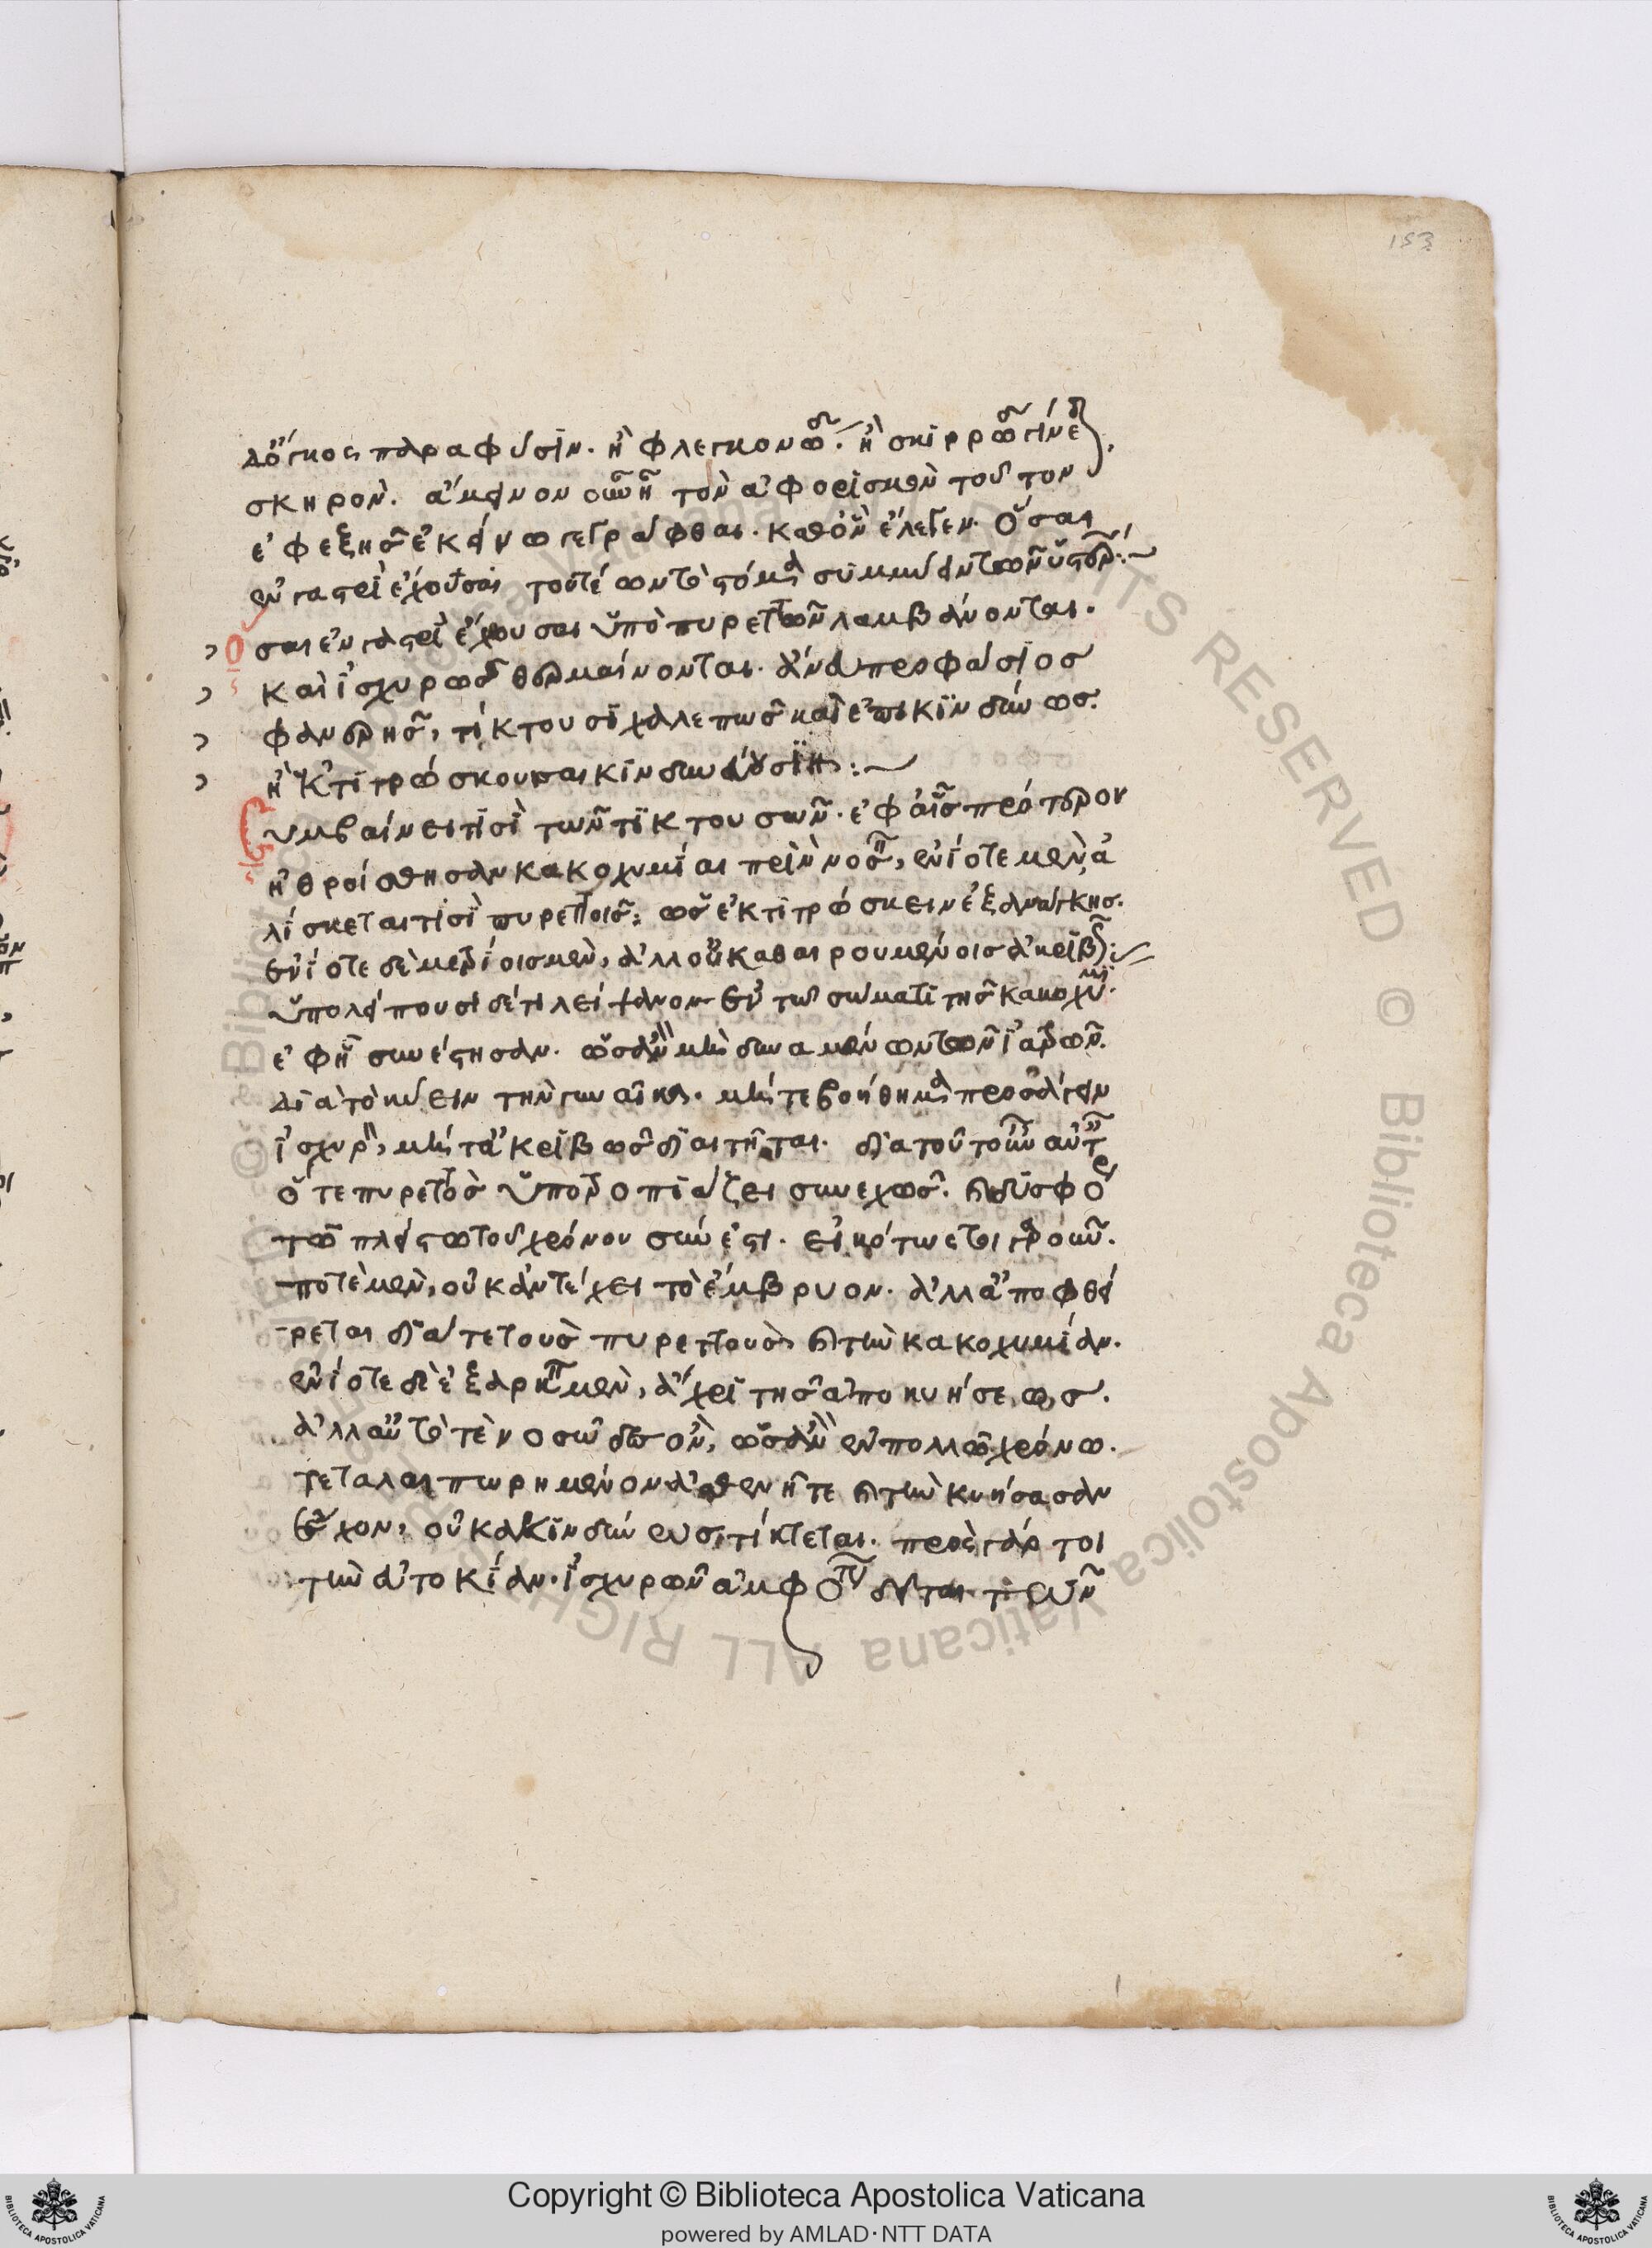 153
δ' ὄγκος παρα φύσιν. ἢ φλεγμονῶδ. ἢ σκιρρῶδ γίνεται,
σκηρὸν. ἄμεινον οὖν ἦ τὸν ἀφορισμὸν τοῦτον
ἐφεξῆς ἐκείνω γεγράφθαι. καθὸν ἔλεγεν. Ὅσαι
ἐν γαστρὶ ἔχουσαι τουτέων τὸ στόμα συμμύει τῶν ὑστερ:~
Ὅσαι ἐν γαστρὶ ἔχουσαι ὑπὸ πυρετῶν λαμβάνονται.
καὶ ἰσχυρῶς θερμαίνονται. ἄνευ προφάσιος
φανερῆς, τίκτουσι χαλεπῶς καὶ ἐπικινδύνως.
ἢ ἐκτιτρώσκουσαι κινδυνεύουσιν:~
Συμβαίνει τισὶ τῶν τικτουσῶν. ἐφ' αἷς πρότερον
ἠθροίσθησαν κακοχυμίαι πρὶν νοσ, ἐνίοτε μὲν ἁ
λίσκεται τισὶ πυρετοῖς, ὡς ἐκτιτρώσκειν ἐξ ἀνάγκης.
ἐνίοτε δὲ μετρίοις μὲν, ἀλλ' οὐ καθαιρουμένοις ἀκριβῶς:~
ὑπολείπουσι δέ τι λείψανον ἐν τῶ σώματι τῆς κακοχυμί.
ἐφ' ἧ συνέστησαν. ὡς ἂν μὴ δυναμένων τῶν ἰατρῶν.
διὰ τὸ κύειν τὴν γυναῖκα. μήτε βοήθημα προσάγειν
ἰσχυρὸν, μήτ' ἀκριβῶς διαιτῆται. διὰ τοῦτο οὖν αὐτ
ὅ τε πυρετὸς ὑποτροπιάζει συνεχῶς. καὶ δύσφορ
τῶ πλείστω τοῦ χρόνου σύνεστι. εἰκότως τοιγαροῦν.
ποτὲ μὲν, οὐκ ἀντέχει τὸ ἔμβρυον. ἀλλ' ἀποφθεί
ρεται διά τε τοὺς πυρετοὺς καὶ τὴν κακοχυμίαν.
ἐνίοτε δὲ ἐξαρκεῖ μὲν, ἄχρι τῆς ἀποκυήσεως.
ἀλλ' αὐτό τε νοσῶδες ὂν, ὡς ἂν ἐν πολλῶ χρόνω.
τεταλαιπωρημένον ἀσθενῆ τε καὶ τὴν κυήσασαν
ἔχον, οὐκ ἀκινδύνως τίκτεται. πρὸς γάρ τοι
τὴν εὐτοκίαν. ἰσχυρῶν ἀμφοτ δεῖται τῶν